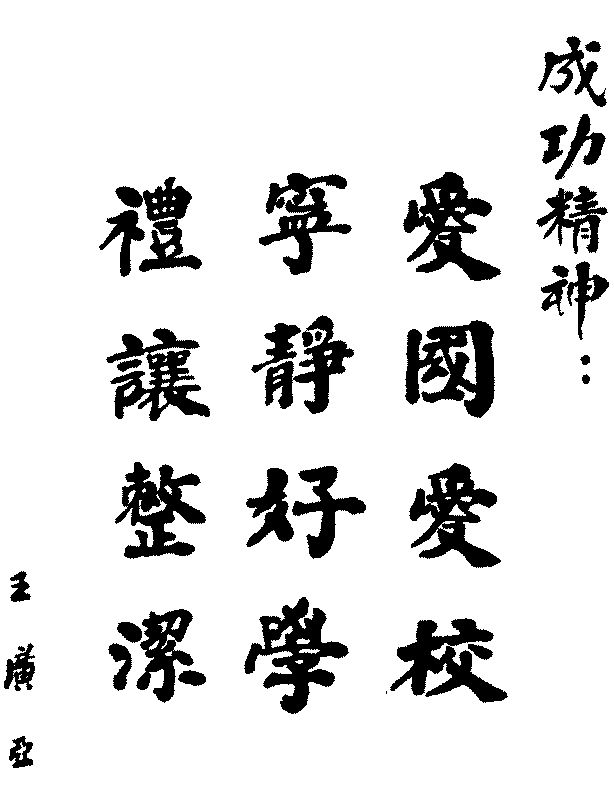 成功精神：
愛國愛校
寧靜好學
禮讓整潔
王廣亞